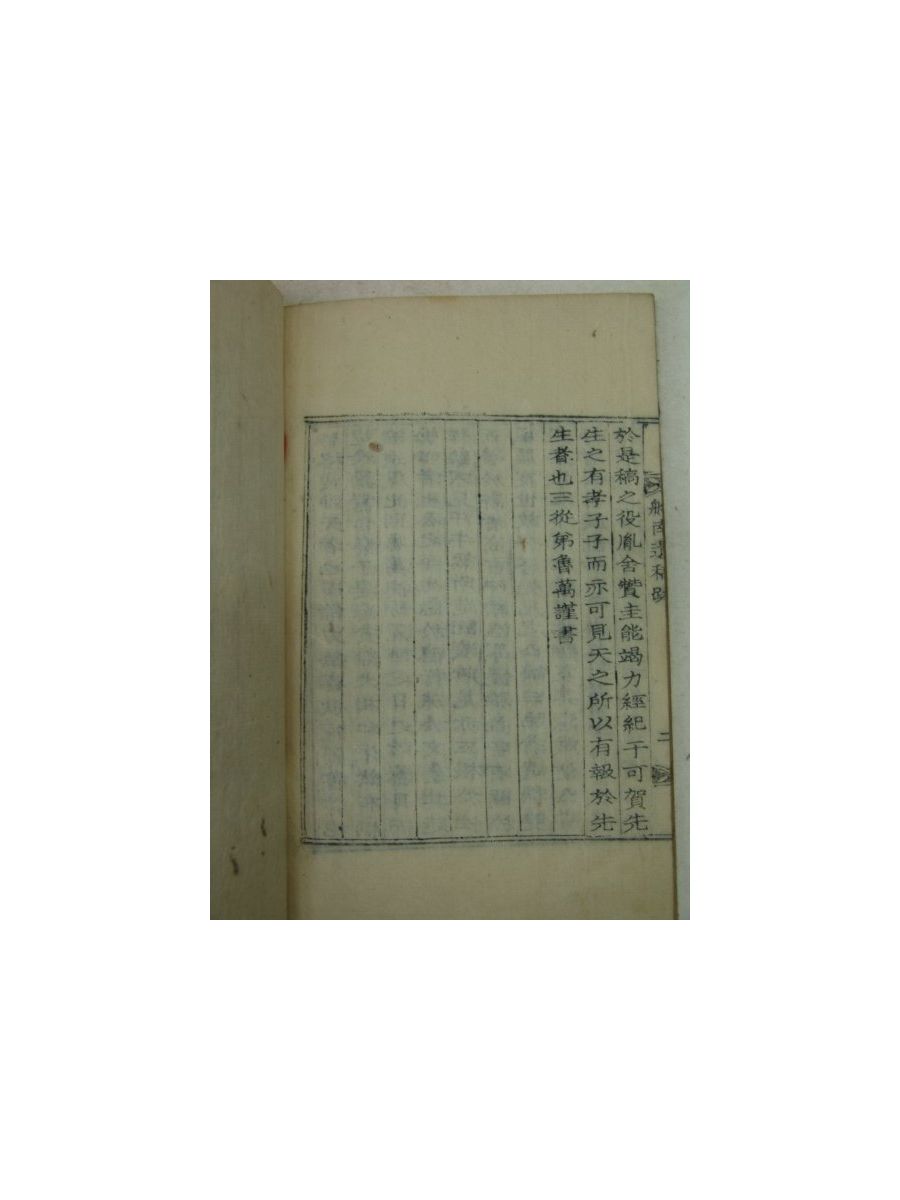 於是稿之役胤舍贊圭能竭力經紀于可賀先
生之有孝子子而亦可見天之所以有報於先
生者也三從弟魯萬謹書
南遺稿跋
二